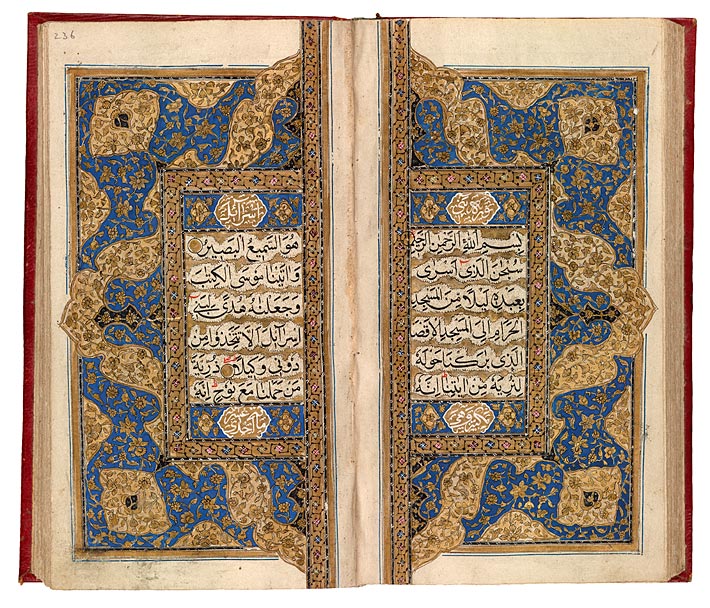 سورة بنى
بِسْمِ اللهِ الرَّحْمٰنِ الرَّحِيمِ
سُبْحٰنَ الَّذِى اَسْرٰى
بِعَبْدِهِ لَيْلًا مِنَ الْمَسْجِدِ
الْحَرَامِ اِلَى الْمَسْجِدِ الْاَقْصَا
الَّذِى بٰرَكْنَا حَوْلَهُ
لِنُرِيَهُ مِنْ اٰيٰتِنَا اِنَّهُ
مكية وهى
236
اسرائل
هُوَ السَّمِيعُ الْبَصِيرُ
وَاٰتَيْنَا مُوسَى الْكِتٰبَ
وَجَعَلْنٰهُ هُدًى لِبَنِى
اِسْرَائِلَ اَلَّا تَتَّخِذُوا مِنْ
دُونِى وَكِيلًا ذُرِّيَّةَ
مَنْ حَمَلْنَا مَعَ نُوحٍ اِنَّهُ